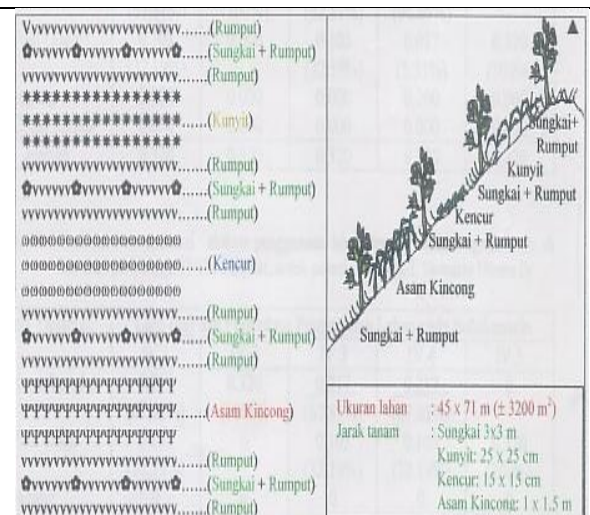 Vvvvvvvvvvvvvvvvvvvvvv......(Rumput)
✿vvvvvv✿vvvvvv✿vvvvvv✿......(Sungkai + Rumput)
vvvvvvvvvvvvvvvvvvvvvv......(Rumput)
****************
****************......(Kunyit)
****************
vvvvvvvvvvvvvvvvvvvvvv......(Rumput)
✿vvvvvv✿vvvvvv✿vvvvvv✿......(Sungkai + Rumput)
vvvvvvvvvvvvvvvvvvvvvv......(Rumput)
......(Kencur)
vvvvvvvvvvvvvvvvvvvvvv......(Rumput)
✿vvvvvv✿vvvvvv✿vvvvvv✿......(Sungkai + Rumput)
vvvvvvvvvvvvvvvvvvvvvv......(Rumput)
ΨΨΨΨΨΨΨΨΨΨΨΨΨΨΨΨ
ΨΨΨΨΨΨΨΨΨΨΨΨΨΨΨΨ......(Asam Kincong)
ΨΨΨΨΨΨΨΨΨΨΨΨΨΨΨΨ
vvvvvvvvvvvvvvvvvvvvvv......(Rumput)
✿vvvvvv✿vvvvvv✿vvvvvv✿......(Sungkai + Rumput)
vvvvvvvvvvvvvvvvvvvvvv......(Rumput)
Sungkai+
Rumput
Kunyit
Sungkai + Rumput
Kencur
Sungkai + Rumput
Asam Kincong
Sungkai + Rumput
Ukuran lahan : 45 x 71 m (± 3200 m²)
Jarak tanam : Sungkai 3x3 m
Kunyit: 25 x 25 cm
Kencur: 15 x 15 cm
Asam Kincong: 1 x 1.5 m